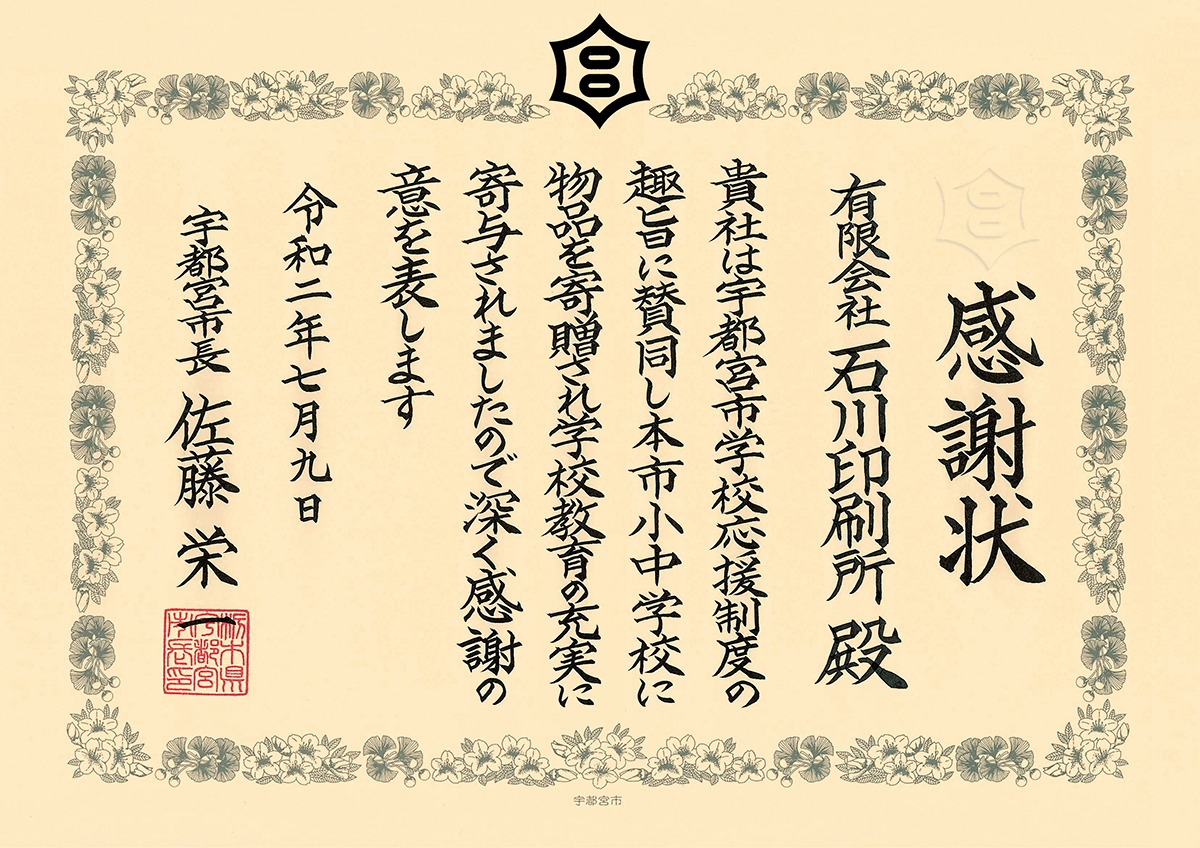 感謝状
有限会社 石川印刷所 殿
貴社は宇都宮市学校応援制度の
趣旨に賛同し本市小中学校に
物品を寄贈され学校教育の充実に
寄与されましたので深く感謝の
意を表します
令和二年七月九日
宇都宮市長 佐藤栄一
栃木県
宇都宮
市長印
宇都宮市